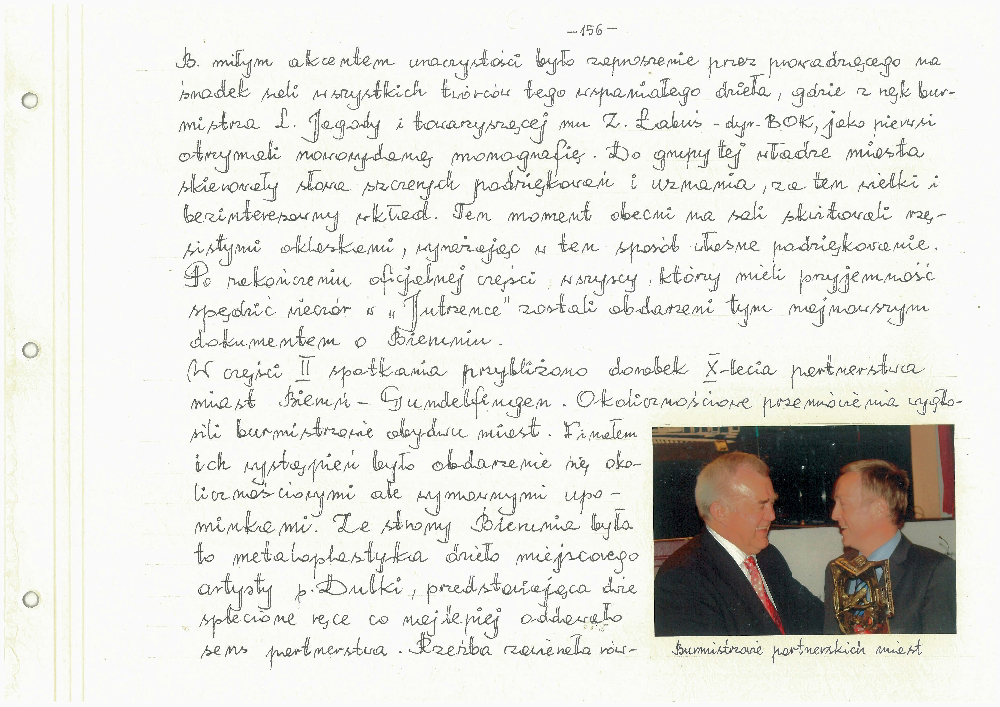 -156-
B. miłym akcentem uroczystości było zaproszenie przez prowadzącego na
środek sali wszystkich twórców tego wspaniałego dzieła, gdzie z rąk bur-
mistrza L. Jagody i towarzyszącej mu Z. Łabuś - dyr. BOK, jako pierwsi
otrzymali nowowydaną monografię. Do grupy tej władze miasta
skierowały słowa szczerych podziękowań i uznania, za ten wielki i
bezinteresowny wkład. Ten moment obecni na sali skwitowali rzę-
sistymi oklaskami, wyrażając w ten sposób własne podziękowanie.
Po zakończeniu oficjalnej części, wszyscy, którzy mieli przyjemność
spędzić wieczór w „Jutrzence" zostali obdarzeni tym najnowszym
dokumentem o Bieruniu.
W części II spotkania przybliżono dorobek X-lecia partnerstwa
miast Bieruń - Gundelfingen. Okolicznościowe przemówienia wygło-
sili burmistrzowie obydwu miast. Finałem
ich wystąpień było obdarzenie się oko-
licznościowymi ale wymownymi upo-
minkami. Ze strony Bierunia była
to metaloplastyka dzieło miejscowego
artysty p. Dulki, przedstawiająca dwie
splecione ręce co najlepiej oddawało
sens partnerstwa. Rzeźba zawierała rów-
Burmistrzowie partnerskich miast